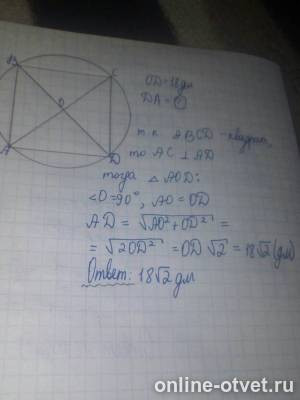 B
C
O
A
D
OD=18дм
DA=?
т.к. ABCD - квадрат,
то AC ⊥ AD
тогда △ AOD:
∠O=90°, AO=OD
AD = √AO²+OD² =
= √2OD² = OD √2 = 18√2 (дм)
Ответ: 18√2 дм
online-otvet.ru